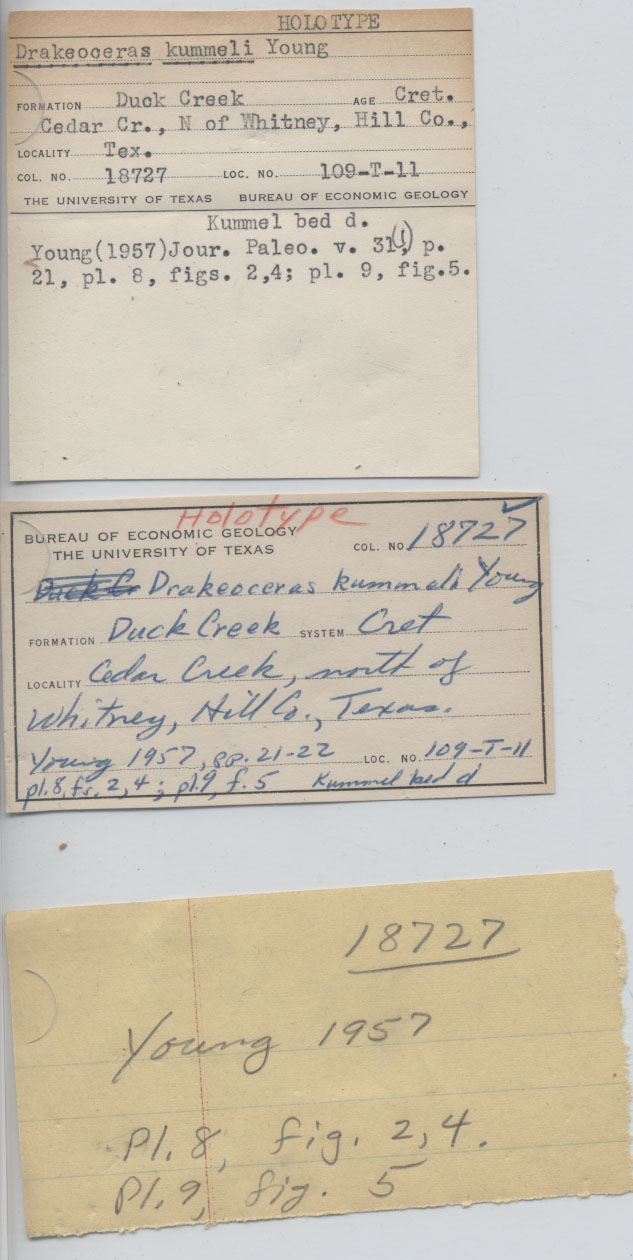 HOLOTYPE
Drakeoceras kummeli Young
FORMATION Duck Creek AGE Cret.
Cedar Cr., N of Whitney, Hill Co.,
LOCALITY Tex.
COL. NO. 18727 LOC. NO. 109-T-11
THE UNIVERSITY OF TEXAS BUREAU OF ECONOMIC GEOLOGY
Kummel bed d.
Young(1957)Jour. Paleo. v. 31(1), p.
21, pl. 8, figs. 2,4; pl. 9, fig.5.
Holotype
BUREAU OF ECONOMIC GEOLOGY
THE UNIVERSITY OF TEXAS COL. NO. 18727
Duck Cr Drakeoceras kummeli Young
FORMATION Duck Creek SYSTEM Cret
LOCALITY Cedar Creek, north of
Whitney, Hill Co., Texas.
Young 1957, pp. 21-22 LOC. NO. 109-T-11
pl. 8, fs. 2, 4; pl. 9, f. 5 Kummel bed d
18727
Young 1957
Pl. 8, fig. 2, 4.
Pl. 9, fig. 5